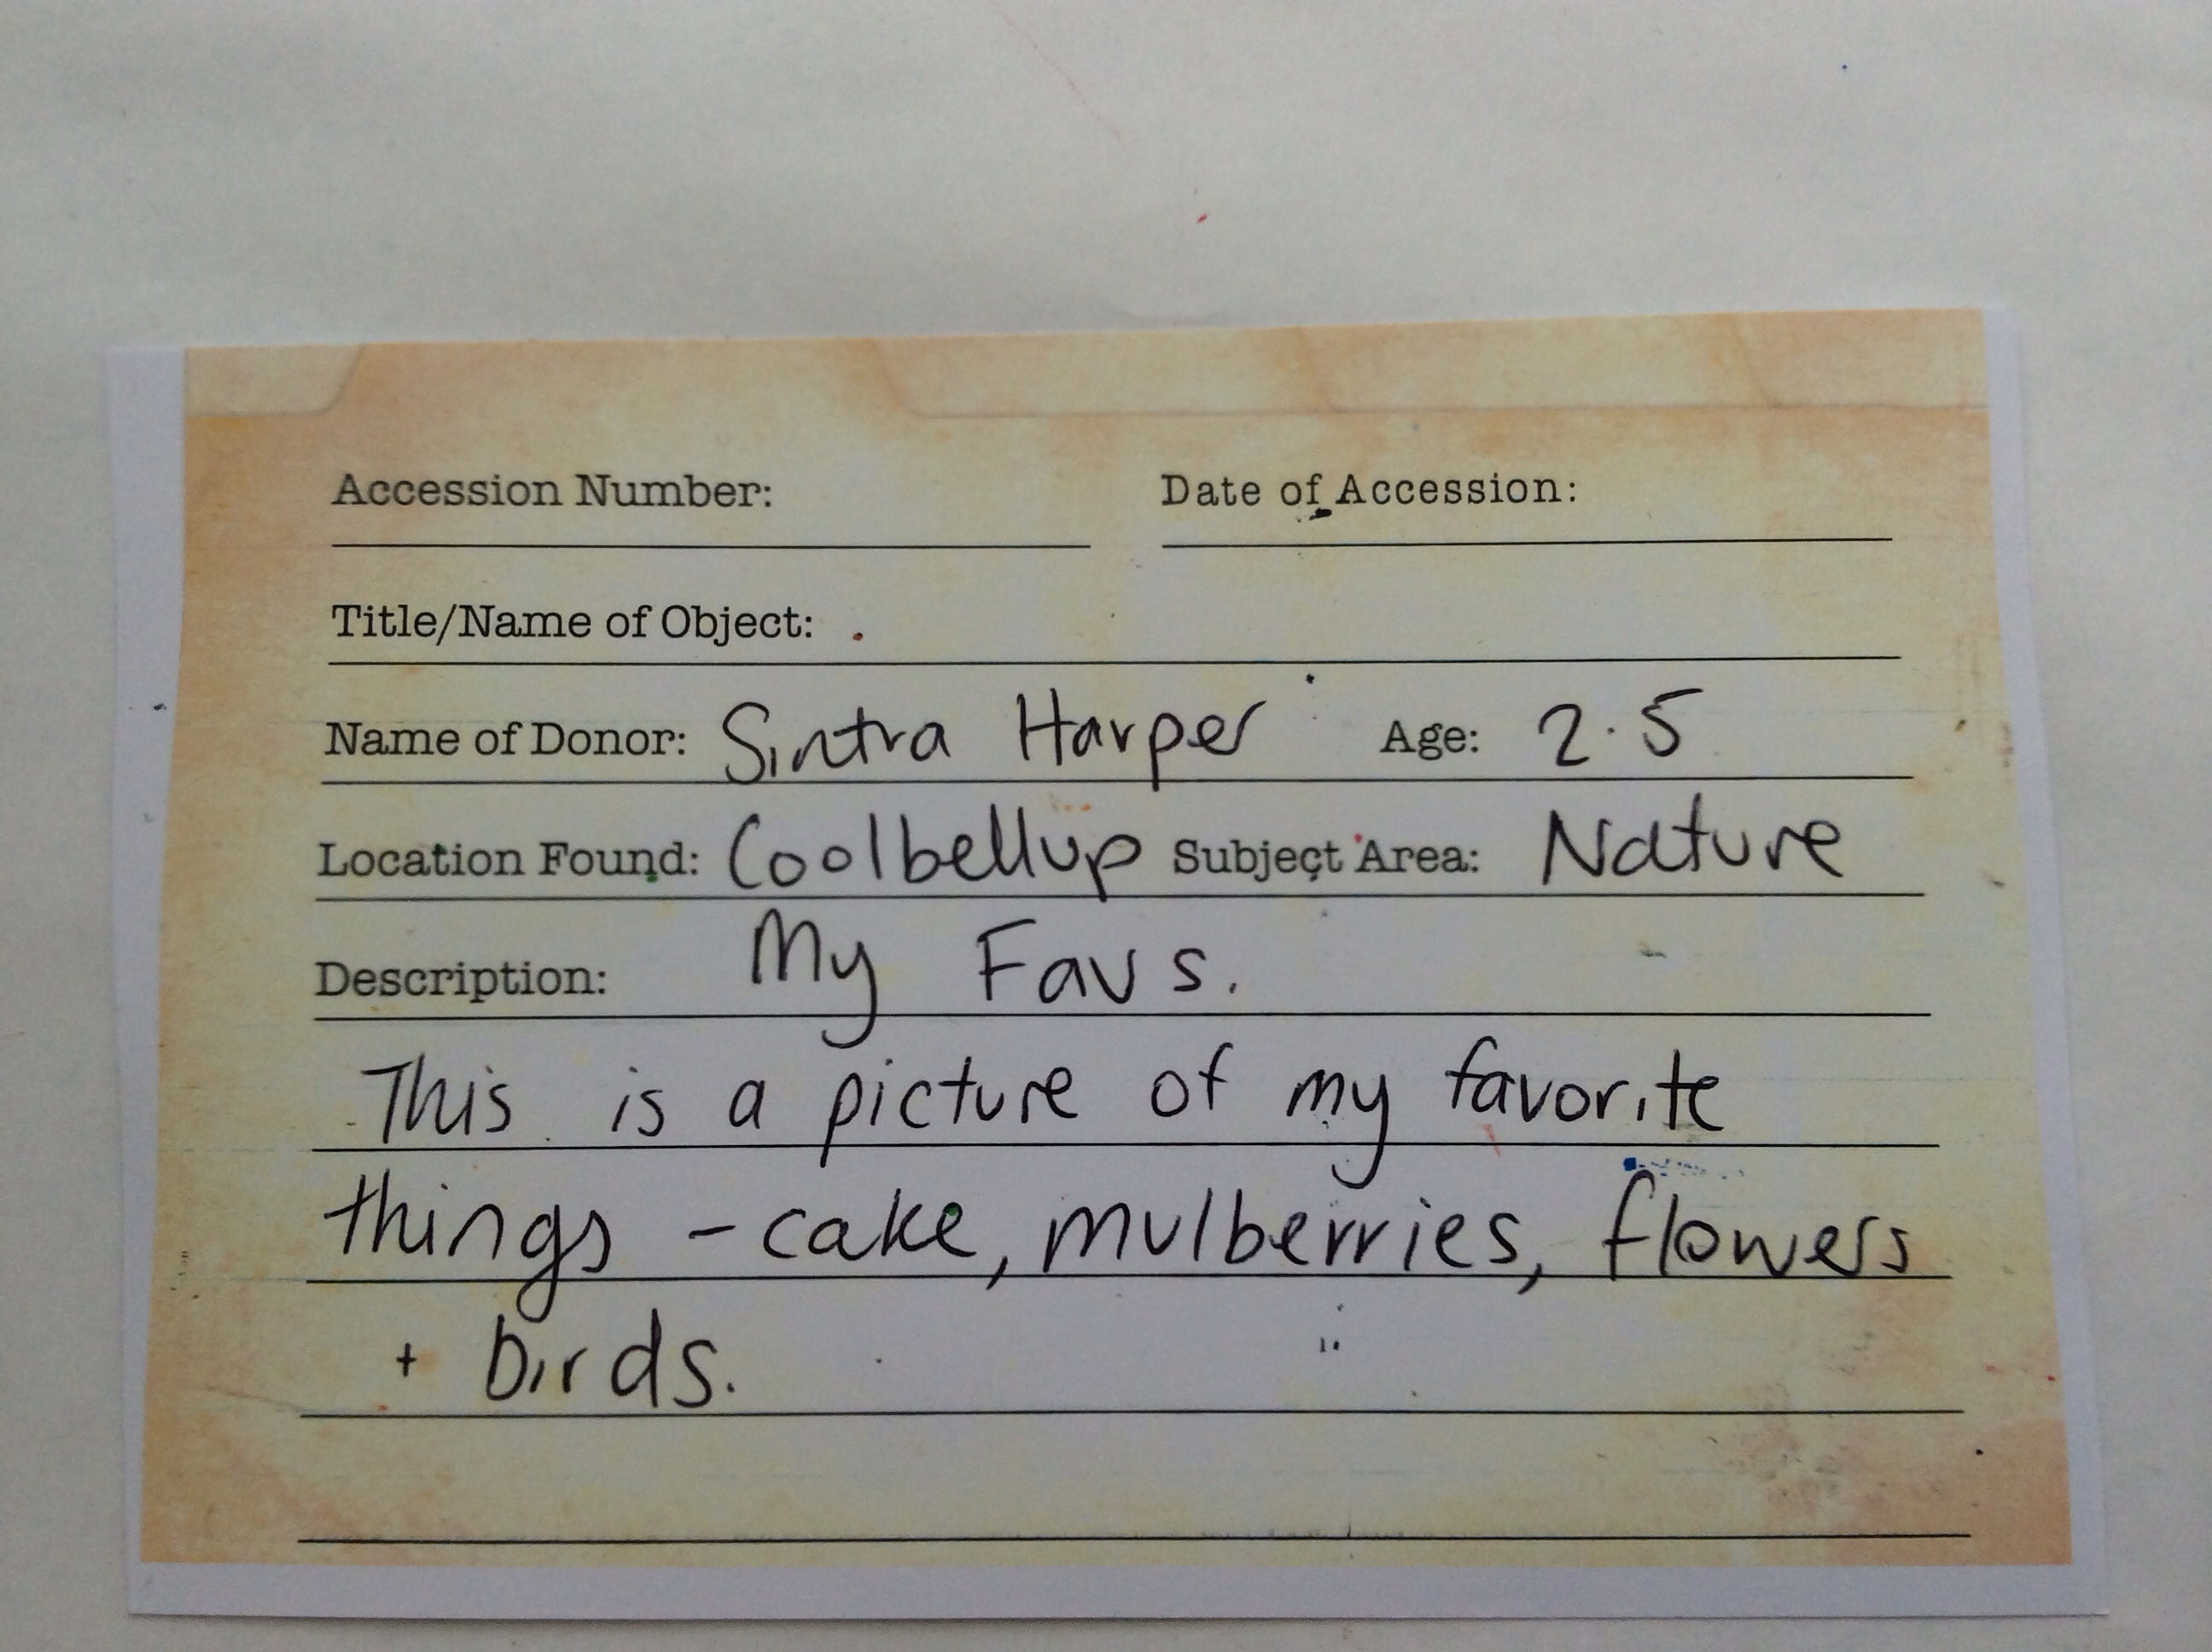 Accession Number: Date of Accession:
Title/Name of Object:
Name of Donor: Sintra Harper Age: 2.5
Location Found: Coolbellup Subject Area: Nature
Description: My Favs.
This is a picture of my favorite
things - cake, mulberries, flowers
+ birds.